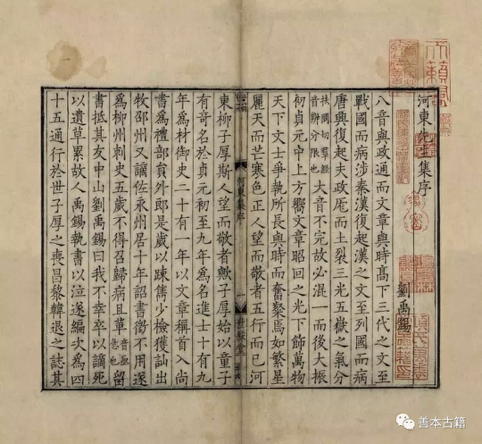 河東先生集序
劉禹錫
八音與政通而文章與時高下三代之文至
戰國而病涉秦漢復起漢之文至列國而病
唐興復起夫政厖而土裂三光五嶽之氣分
扶問切羣經音辨分限也大音不完故必混一而後大振
初貞元中上方嚮文章昭回之光下飾萬物
天下文士爭執所長與時而奮粲焉如繁星
麗天而芒寒色正人望而敬者五行而已河
東柳子厚斯人望而敬者歟子厚始以童子
有奇名於貞元初至九年爲名進士十有九
年爲材御史二十有一年以文章稱首入尚
書爲禮部員外郎是歲以疎雋少檢獲訕出
牧邵州又謫佐永州居十年詔書徵不用遂
爲柳州刺史五歲不得召歸病且革音亟急也留
書抵其友中山劉禹錫曰我不幸卒以謫死
以遺草累故人禹錫執書以泣遂編次爲四
十五通行於世子厚之喪昌黎韓退之誌其
善本古籍